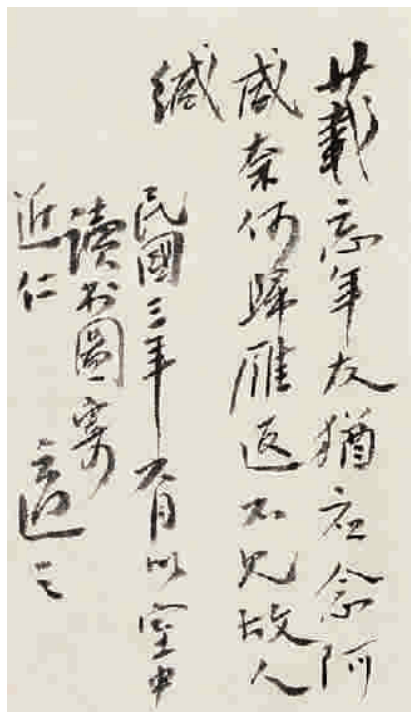 廿載忘年友猶應念阿
咸奈何歸雁返不見故人
緘
民國三年六月以空中
讀書圖寄
近仁 適之